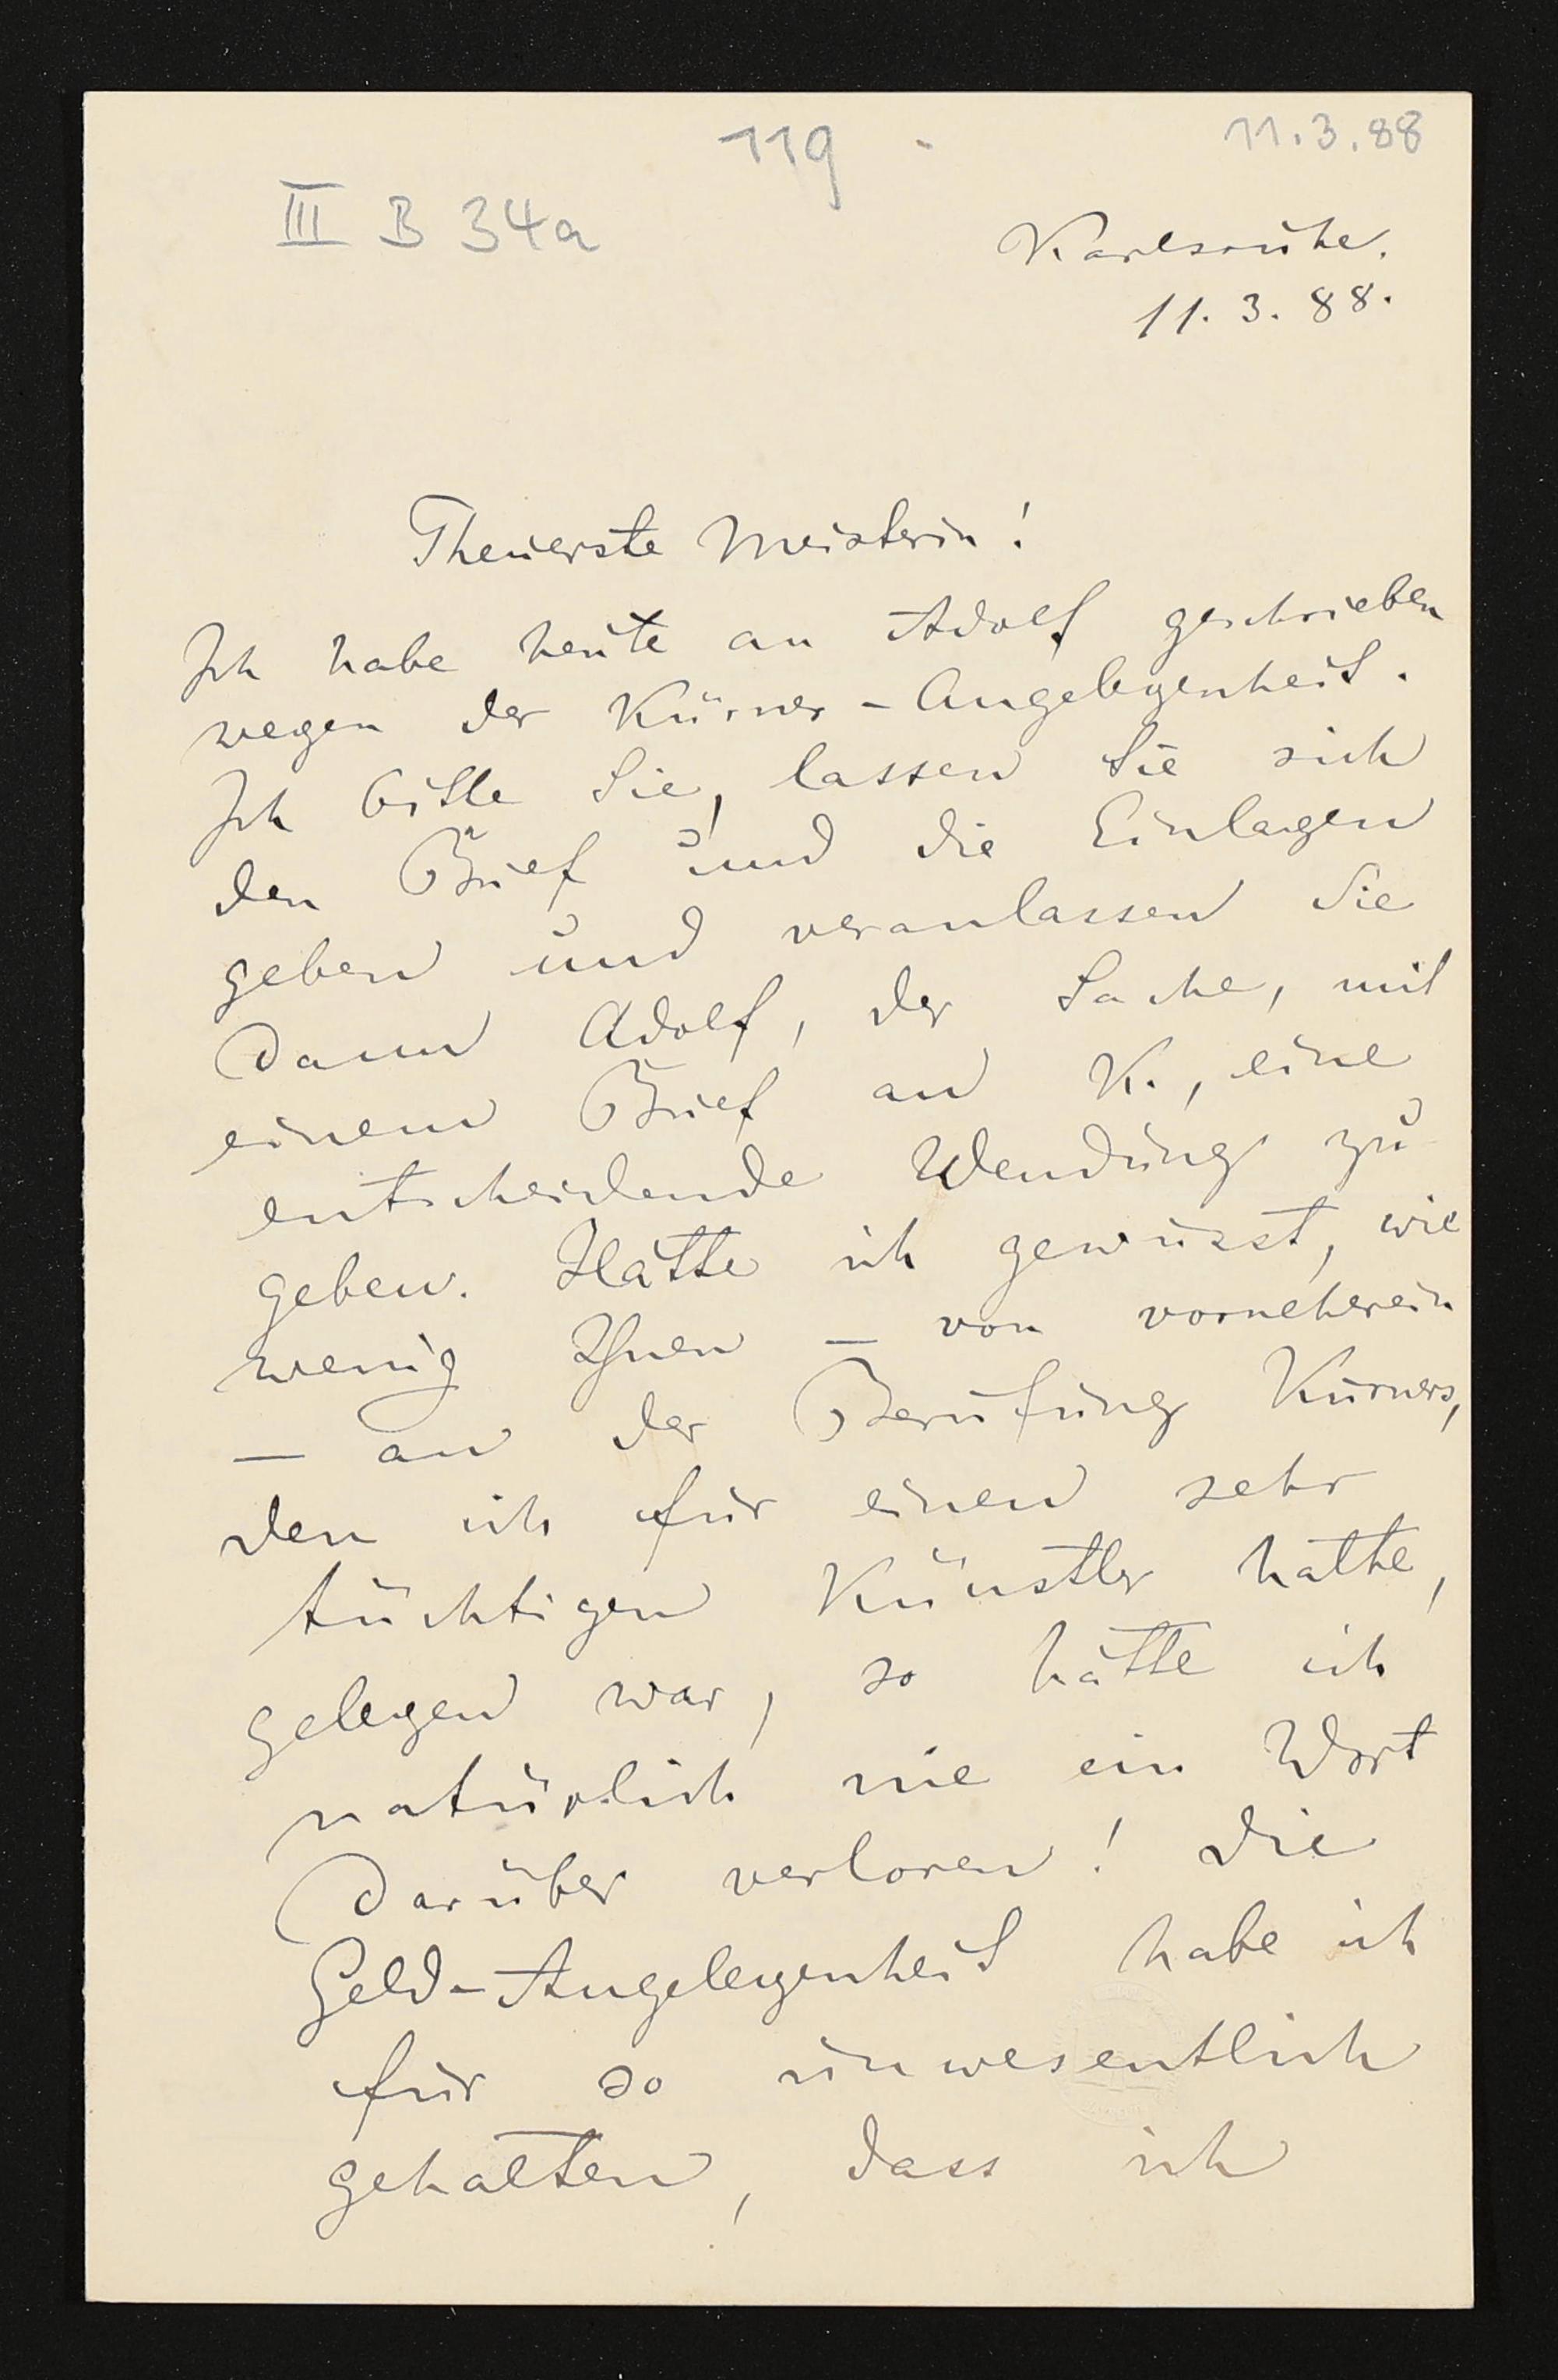 119 -
11.3.88
III B 34a
Karlsruhe.
11. 3. 88.
Theuerste Meisterin!
Ich habe heute an Adolf geschrieben
wegen der Kürner-Angelegenheit.
Ich bitte Sie, lassen Sie sich
den Brief und die Einlagen
geben und veranlassen Sie
dann Adolf, der Sache, mit
einem Brief an K., eine
entscheidende Wendung zu
geben. Hätte ich gewusst, wie
wenig Ihnen – von vorneherein
– an der Berufung Kürners,
den ich für einen sehr
tüchtigen Künstler hatte,
gelegen war, so hätte ich
natürlich nie ein Wort
darüber verloren! Die
Geld-Angelegenheit habe ich
für so unwesentlich
gehalten, dass ich